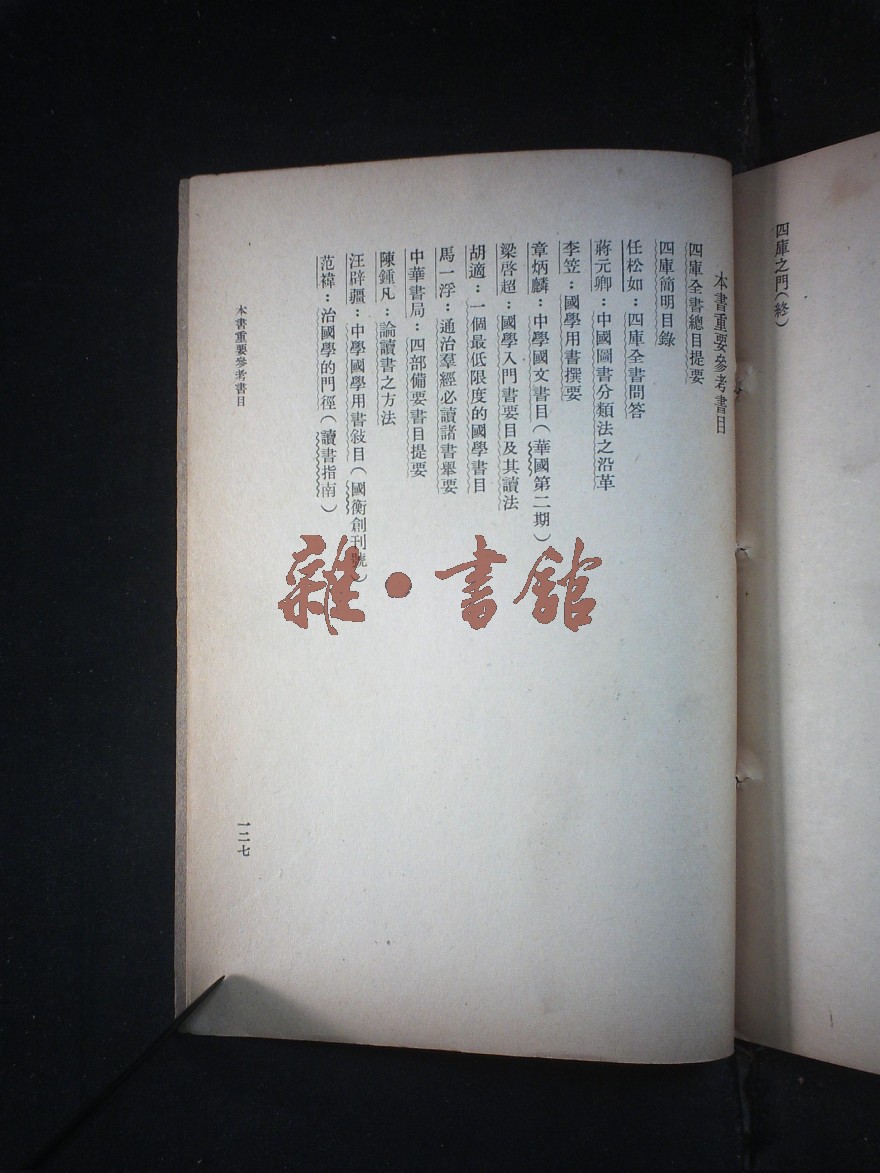 四庫之門(終)
本書重要參考書目
四庫全書總目提要
四庫簡明目錄
任松如:四庫全書問答
蔣元卿:中國圖書分類法之沿革
李笠:國學用書撰要
章炳麟:中學國文書目(華國第二期)
梁啓超:國學入門書要目及其讀法
胡適:一個最低限度的國學書目
馬一浮:通治羣經必讀諸書舉要
中華書局:四部備要書目提要
陳鍾凡:論讀書之方法
汪辟疆:中學國學用書敍目(國衡創刊號)
范禕:治國學的門徑(讀書指南)
本書重要參考書目
一二七
雜·書館